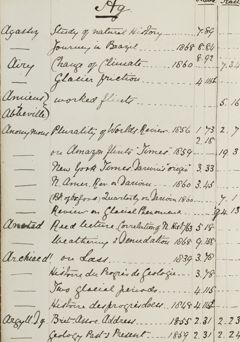 Ag
Agassiz Study of natural History 7.89
— Journey in Brazil 1868 8.84
8.92
Airy Change of Climate 1860 7.34
— Glacier friction 4.
Amiens & worked flints 5.16
Abbeville
Anonymous Plurality of Worlds Review 1856 1.73 2.7
2.18
— on Amazon flints "Times" 1859 19.3
— New York Times Darwin's orig: 3.33
— N. Amer. Rev. on Darwin 1860 3.45
— Bp. of Oxford, Quarterly on Darwin 1860 7.1
— Review on Glacial 94.13
Ansted lecture, Correlation of Nat. 1863 5.18
— Weathering & Denudation 1868 9.
Archiac d' on Loess. 1839 3.78
— Histoire du Progrès de Géologie 3.78
— Two glacial periods 4.115
— Histoire des progrès Loess. 1848 4.
Argyll D. of Brit. Assoc. Address 1855 2.31 2.23
— Geology Past & Present 1859 2.31 2.24